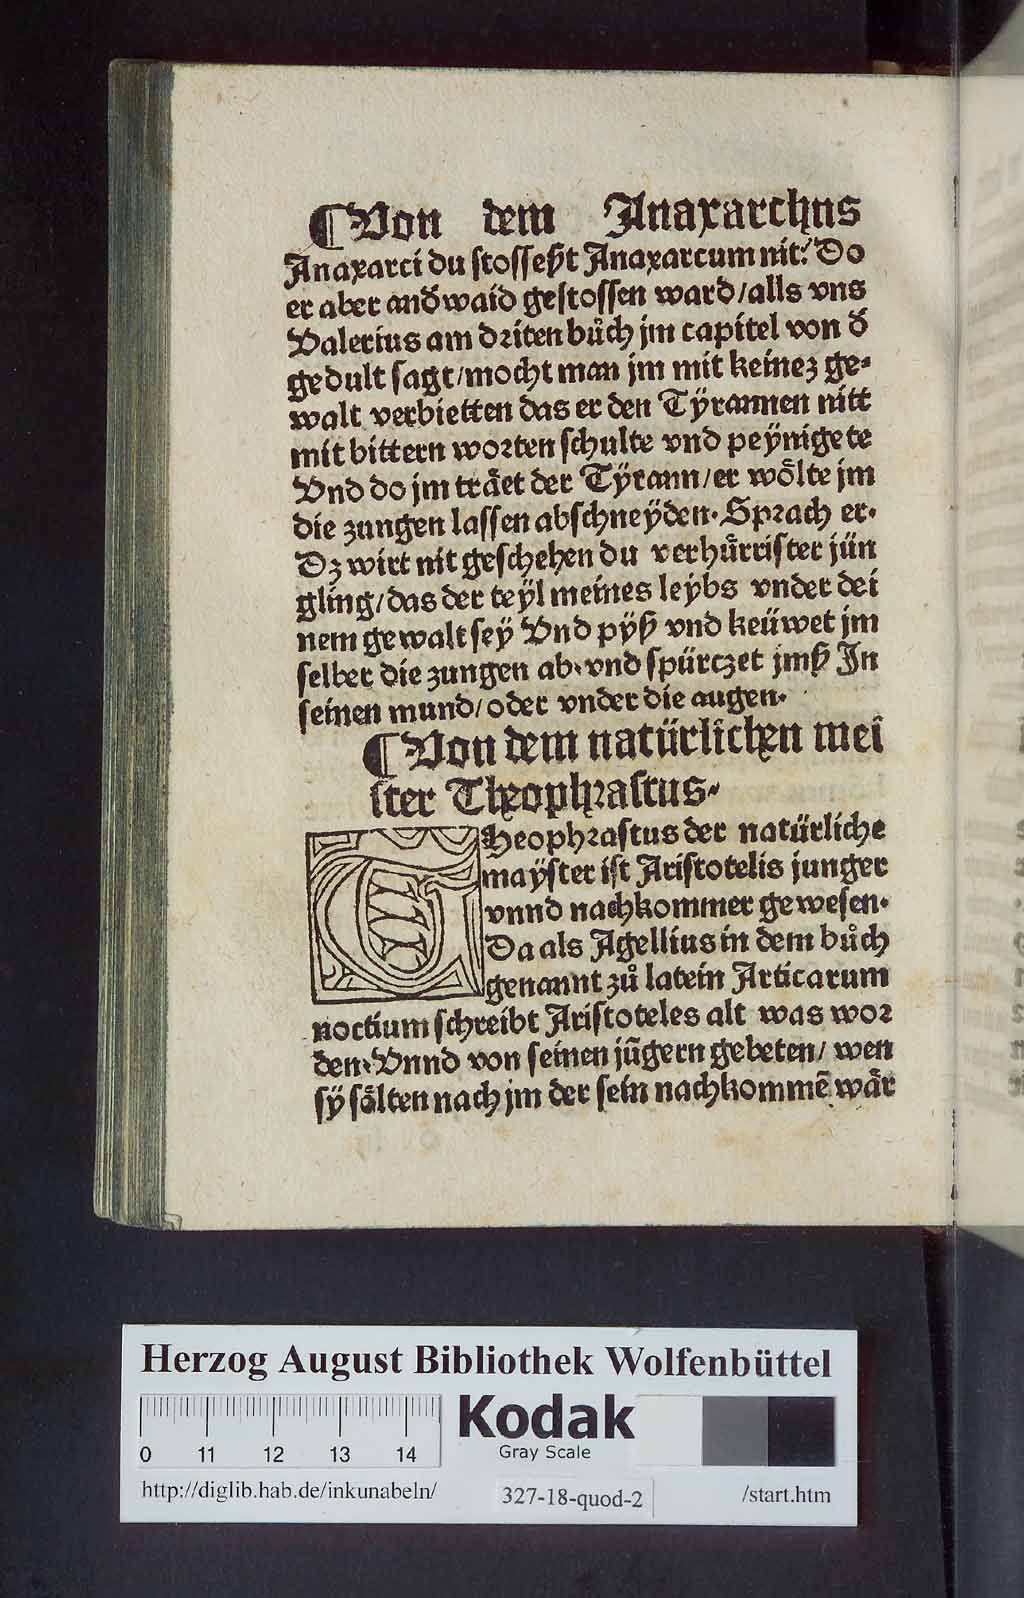 ¶Von dem Anaxarchns
Anaxarci du stossest Anaxarcum nit? Do
er aber andꝰwaid gestossen ward/alls vns
Valerius am dꝛiten bůch jm capitel von ð
gedult sagt/mocht man jm mit keinez ge⸗
walt verbietten das er den Tÿrannen nitt
mit bittern woꝛten schulte vnd peÿnigete
Vnd do jm träet der Tÿrann/er wölte jm
die zungen lassen abschneÿden. Spꝛach er.
Dz wirt nit geschehen du verhürrister jün
gling/das der teÿl meines leÿbs vnder dei
nem gewalt seÿ Vnd pÿß vnd keüwet jm
selber die zungen ab. vnd spürczet jmß In
seinen mund/oder vnder die augen.
¶Von dem natürlichen mei
ster Theophꝛastus.
THeophꝛastus der natürliche
maÿster ist Aristotelis junger
vnnd nachkommer gewesen.
Da als Agellius in dem bůch
genannt zů latein Articarum
noctium schreibt Aristoteles alt was woꝛ
den. Vnnd von seinen jügern gebeten/ wen
sÿ sölten nach jm der sein nachkommē wär
Herzog August Bibliothek Wolfenbüttel
0 11 12 13 14
Kodak
Gray Scale
http://diglib.hab.de/inkunabeln/ 327-18-quod-2 /start.htm